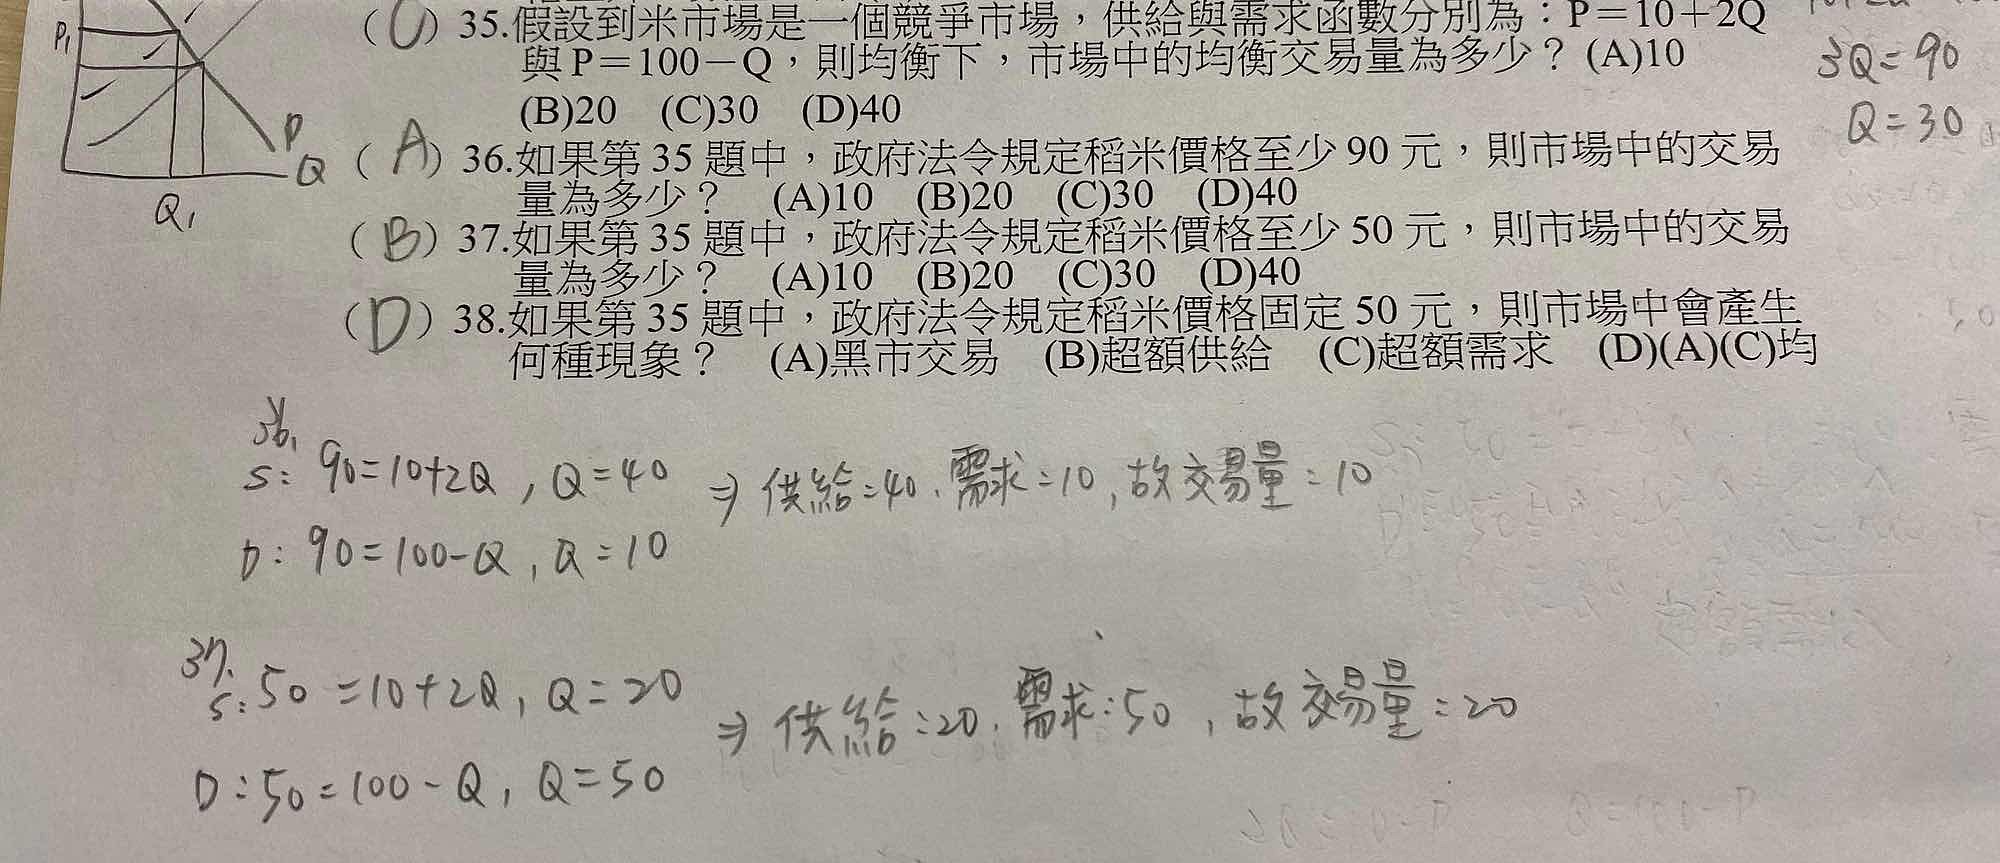 P₁
P
Q
Q₁
(C) 35.假設到米市場是一個競爭市場，供給與需求函數分別為：P＝10＋2Q
與P＝100－Q，則均衡下，市場中的均衡交易量為多少？(A)10
(B)20 (C)30 (D)40
3Q=90
Q=30
(A) 36.如果第35題中，政府法令規定稻米價格至少90元，則市場中的交易
量為多少？ (A)10 (B)20 (C)30 (D)40
(B) 37.如果第35題中，政府法令規定稻米價格至少50元，則市場中的交易
量為多少？ (A)10 (B)20 (C)30 (D)40
(D) 38.如果第35題中，政府法令規定稻米價格固定50元，則市場中會產生
何種現象？ (A)黑市交易 (B)超額供給 (C)超額需求 (D)(A)(C)均
36.
S: 90=10+2Q, Q=40 ⇒ 供給=40、需求=10, 故交易量=10
D: 90=100-Q, Q=10
37.
S: 50=10+2Q, Q=20 ⇒ 供給=20、需求=50, 故交易量=20
D: 50=100-Q, Q=50